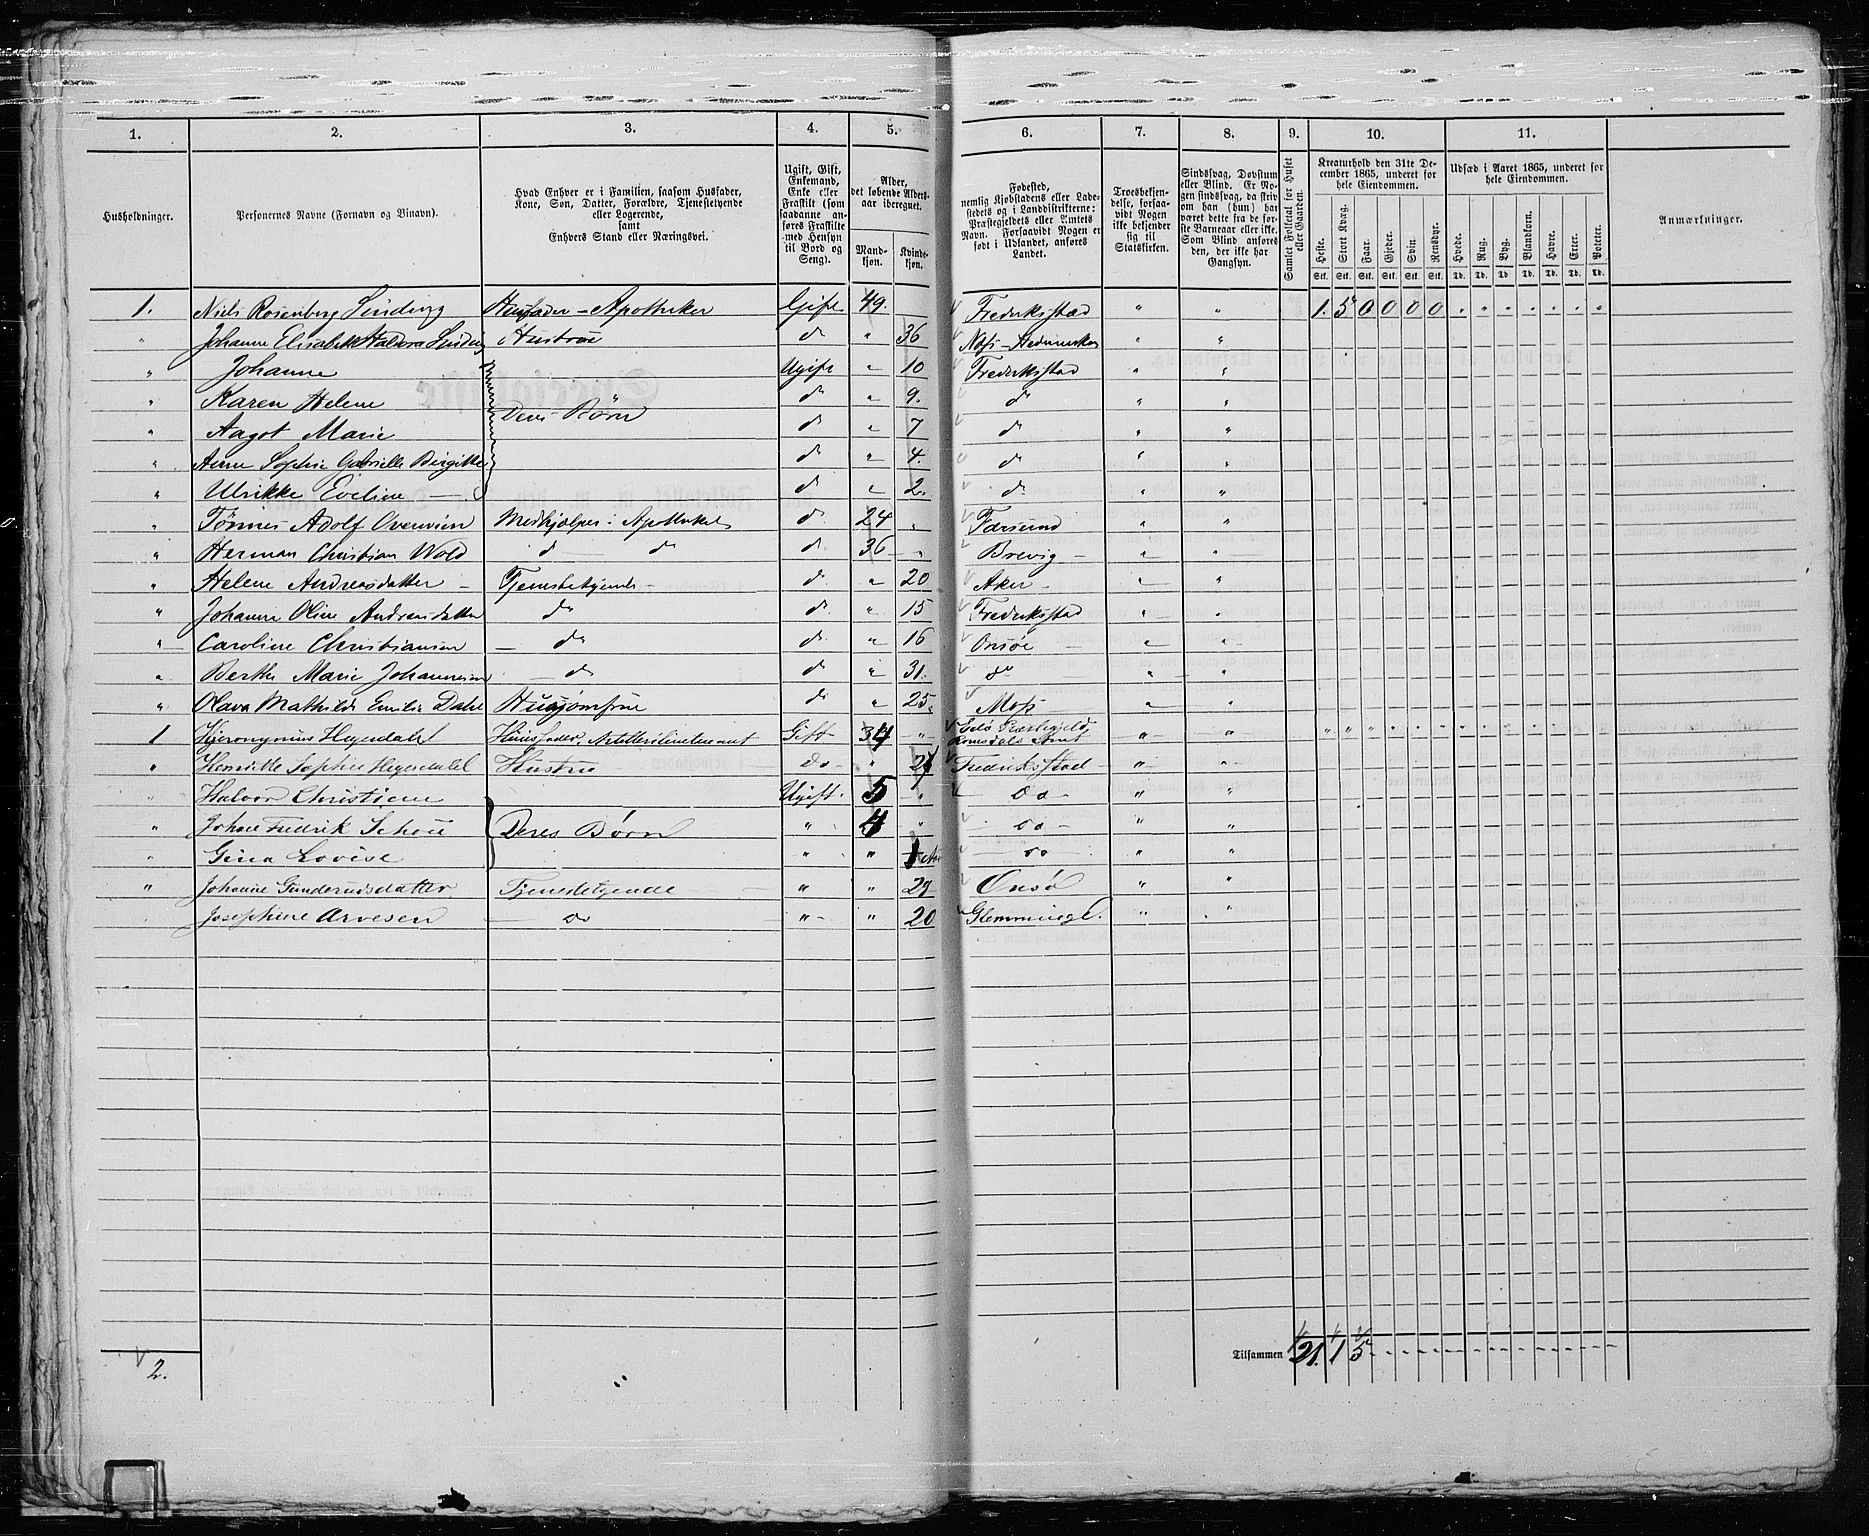 1. 2. 3. 4. 5. 6. 7. 8. 9. 10. 11.
Husholdninger.
Personernes Navne (Fornavn og Binavn).
Hvad Enhver er i Familien, saasom Husfader,
Kone, Søn, Datter, Forældre, Tjenestetyende
eller Logerende,
samt
Enhvers Stand eller Næringsvei.
Ugift, Gift,
Enkemand,
Enke eller
Fraskilt (som
saadanne an-
føres Fraskilte
med Hensyn
til Bord og
Seng).
Alder,
det løbende Alders-
aar iberegnet.
Mand-
kjøn.
Kvinde-
kjøn.
Fødested,
nemlig Kjøbstadens eller Lade-
stedets og i Landdistrikterne:
Præstegjeldets eller Amtets
Navn. Forsaavidt Nogen er
født i Udlandet, anføres
Landet.
Troesbekjen-
delse, forsaa-
vidt Nogen
ikke bekjender
sig til
Statskirken.
Sindssvag, Døvstum
eller Blind. Er No-
gen sindssvag, da skriv
om han (hun) har
været dette fra de før-
ste Barneaar eller ikke.
Som Blind anføres
den, der ikke har
Gangsyn.
Samlet Folketal for Huset
eller Gaarden.
Kreaturhold den 31te De-
cember 1865, underet for
hele Eiendommen.
Heste. Stort Kvæg. Faar. Gjeder. Svin. Rensdyr.
Stk. Stk. Stk. Stk. Stk. Stk.
Udsæd i Aaret 1865, underet for
hele Eiendommen.
Hvede. Rug. Byg. Blandkorn. Havre. Erter. Poteter.
Td. Td. Td. Td. Td. Td. Td.
Anmærkninger.
1. Niels Rosenberg Sinding Husfader - Apotheker Gift 49. Frederiksstad " " 1. 5 0 0 0 0
" Johanne Elisabeth Halvora Sinding Hustrue d " 36 " "
" Johanne Ugift " 10 Frederiksstad " "
" Karen Helene d " 9. d " "
" Aagot Marie Deres Børn d " 7 d " "
" Anne Sophie Gabrielle Birgitte d " 4. d " "
" Ulrikke Eveline d " 2. d " "
" Tønnes Adolf Overvien Medhjælper i Apotheket d 24 " Farsund " "
" Herman Christian Wold d d d 36 " Brevig " "
" Helene Andreasdatter Tjenestetyende d " 20 Aker " "
" Johanne Oline Andreasdatter do d " 15 Frederiksstad " "
" Caroline Christiansen do d " 16 Onsøe " "
" Berthe Marie Johannesen do d " 31. do " "
" Olava Mathilde Emilie Dahl Husjomfrue d " 25. Moss " "
1 Hjeronymus Heyerdahl Husfader, Artillerilieutenant Gift 34 " Edø Præstegjeld, Romsdals Amt " "
" Henrikke Sophie Heyerdahl Hustru Do " 27 Fredriksstad " "
" Halvor Christian Ugift 5 " Do " "
" Johan Fredrik Schou Deres Børn " 4 " do " "
" Gina Lovise " " 1 do " "
" Johanne Gundersdatter Tjenestetyende " " 29 Onsø " "
Josephine Arvesen do " " 20 Glemminge " "
2.
Tilsammen 21. 1 5